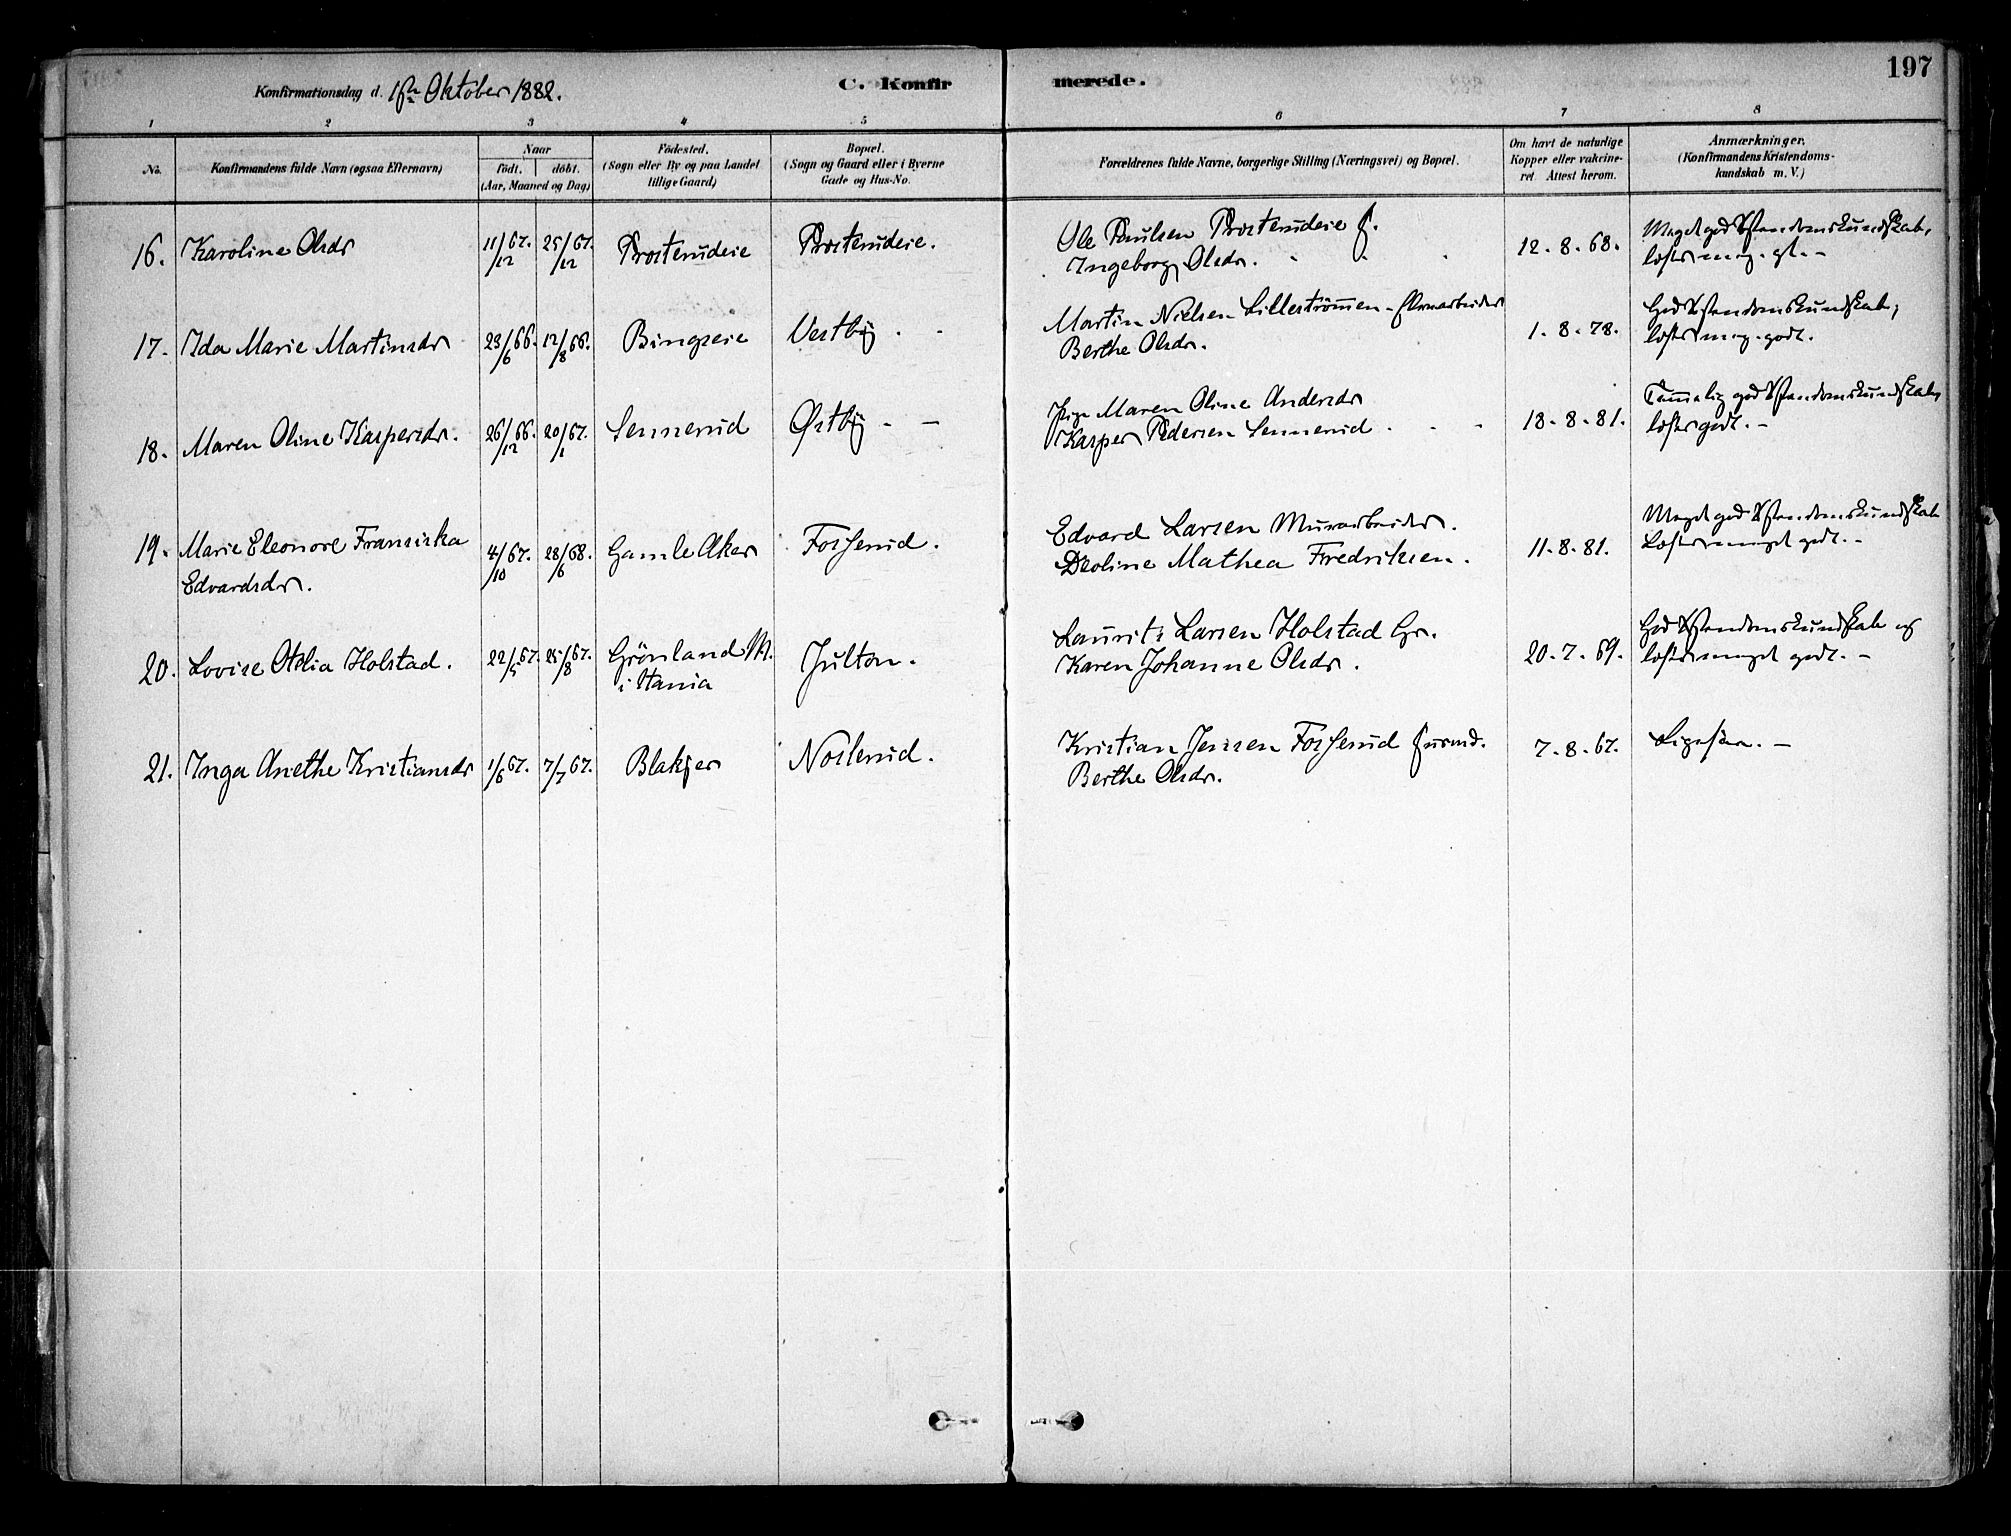 197
Konfirmationsdag d. 1ste Oktober 1882.
C. Konfirmerede.
1 2 3 4 5 6 7 8
No.
Konfirmandens fulde Navn (ogsaa Efternavn)
Naar
født. døbt.
(Aar, Maaned og Dag)
Fødested.
(Sogn eller By og paa Landet
tillige Gaard)
Bopæl.
(Sogn og Gaard eller i Byerne
Gade og Hus-No.
Forældrenes fulde Navne, borgerlige Stilling (Næringsvei) og Bopæl.
Om havt de naturlige
Kopper eller vakcine-
ret. Attest herom.
Anmærkninger.
(Konfirmandens Kristendoms-
kundskab m. V.)
16. Karoline Olsdr 11/12 67. 25/12 67. Prosterudeie Prosterudeie. Ole Paulsen Prosterudeie f. 12-8-68. Meget god Xstendomskundskab,
Ingeborg Olsdr. læste meg. gt. -
17. Ida Marie Martinsdr 23/6 66. 12/8 66. Bingseie Vestby Martin Nielsen Lilleströmmen - 1-8-78. God Xstendomskundskab,
Berthe Olsdr. læste meg. godt.
18. Maren Oline Kaspersdr. 26/12 66. 20/1 67. Sennerud Østby - - Pige Maren Oline Andersdr 18-8-81. Temmelig god Xstendomskundskab,
Kasper Pedersen Sennerud læste godt. -
19. Marie Eleonore Fransiska 4/10 67. 28/6 68. Gamle Aker Fosserud. Edvard Larsen Murarbeider. 11-8-81. Meget god Xstendomskundskab
Edvardsdr. Mathea Fredriksen. Læste meget godt. -
20. Lovise Otelia Holstad. 22/5 67. 25/8 67. Grönland M. Julton. Laurits Larsen Holstad Gr. 20-7-69. God Xstendomskundskab og
i Kania Karen Johanne Olsdr. læste meget godt. -
21. Inga Anethe Kristiansdr 1/6 67. 7/7 67. Blakjer Noslerud. Kristian Jensen Fosserud 7-8-67. Ligesaa. -
Berthe Olsdr.